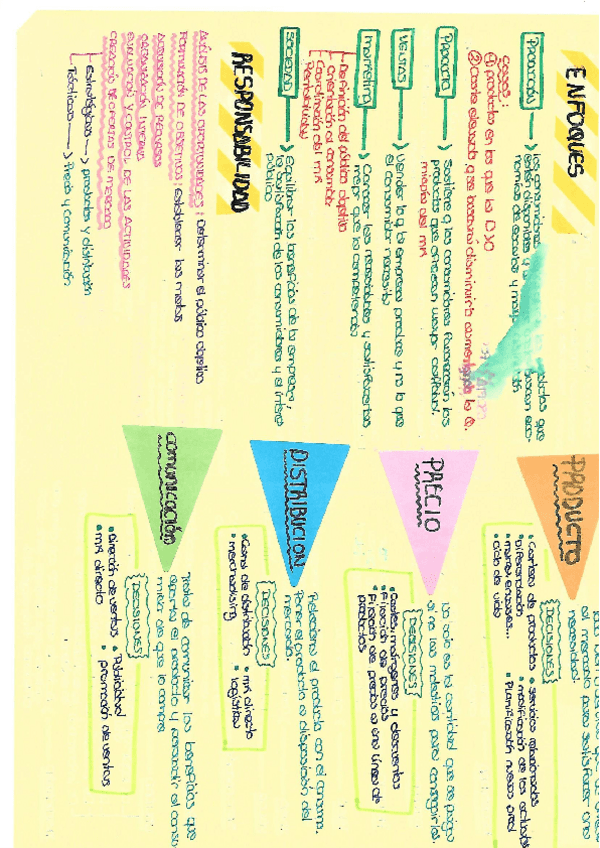 ENFOQUES
PRODUCCIÓN
los consumidores
estén disponibles y
nomías de escala y mayor
casos:
① productos en los que la D>O
② Coste elevado que buscará disminuirlo aumentando la
PRODUCTO
Sostiene q los consumidores favorecerán los
productos que ofrezcan mayor calidad.
miopía del mk
VENTAS
Vender lo q la empresa produce y no lo que
el consumidor necesita
Marketing
Conocer las necesidades y satisfacerlas
mejor que la competencia
Definición del público objetivo
orientación al consumidor
Coordinación del mk
Rentabilidad
SOCIEDAD
Equilibrar los beneficios de la empresa,
la satisfacción de los consumidores y el interés
público
RESPONSABILIDAD
ANÁLISIS DE LAS OPORTUNIDADES: Determinar el público objetivo
FORMULACIÓN DE OBJETIVOS: Establecer las metas
ASIGNACIÓN DE RECURSOS
ORGANIZACIÓN INTERNA
EVALUACIÓN Y CONTROL DE LAS ACTIVIDADES
CREACIÓN DE OFERTAS DE MERCADO
Estratégicas → producto y distribución
Tácticas → Precio y comunicación
PRODUCTO
el mercado para satisfacer una
necesidad.
DECISIONES
• Cartera de productos
• Diferenciación
• marca, envases...
• ciclo de vida
• servicios relacionados
• modificación de los actuales
• Planificación nuevos prod
PRECIO
No solo es la cantidad que se paga
si no las molestias para conseguirlo.
DECISIONES
• Costes, márgenes y descuentos
• Fijación de precios
• Fijación de precios a una línea de
productos
DISTRIBUCION
Relaciona el producto con el consumo.
Poner el producto a disposición del
mercado.
DECISIONES
• Canal de distribución
• merchandising
• mk directo
• logística
COMUNICACIÓN
Trata de comunicar los beneficios que
aporta el producto y persuadir al consu
midor de que lo compre
DECISIONES
• Dirección de ventas
• mk directo
• Publicidad
• promoción de ventas